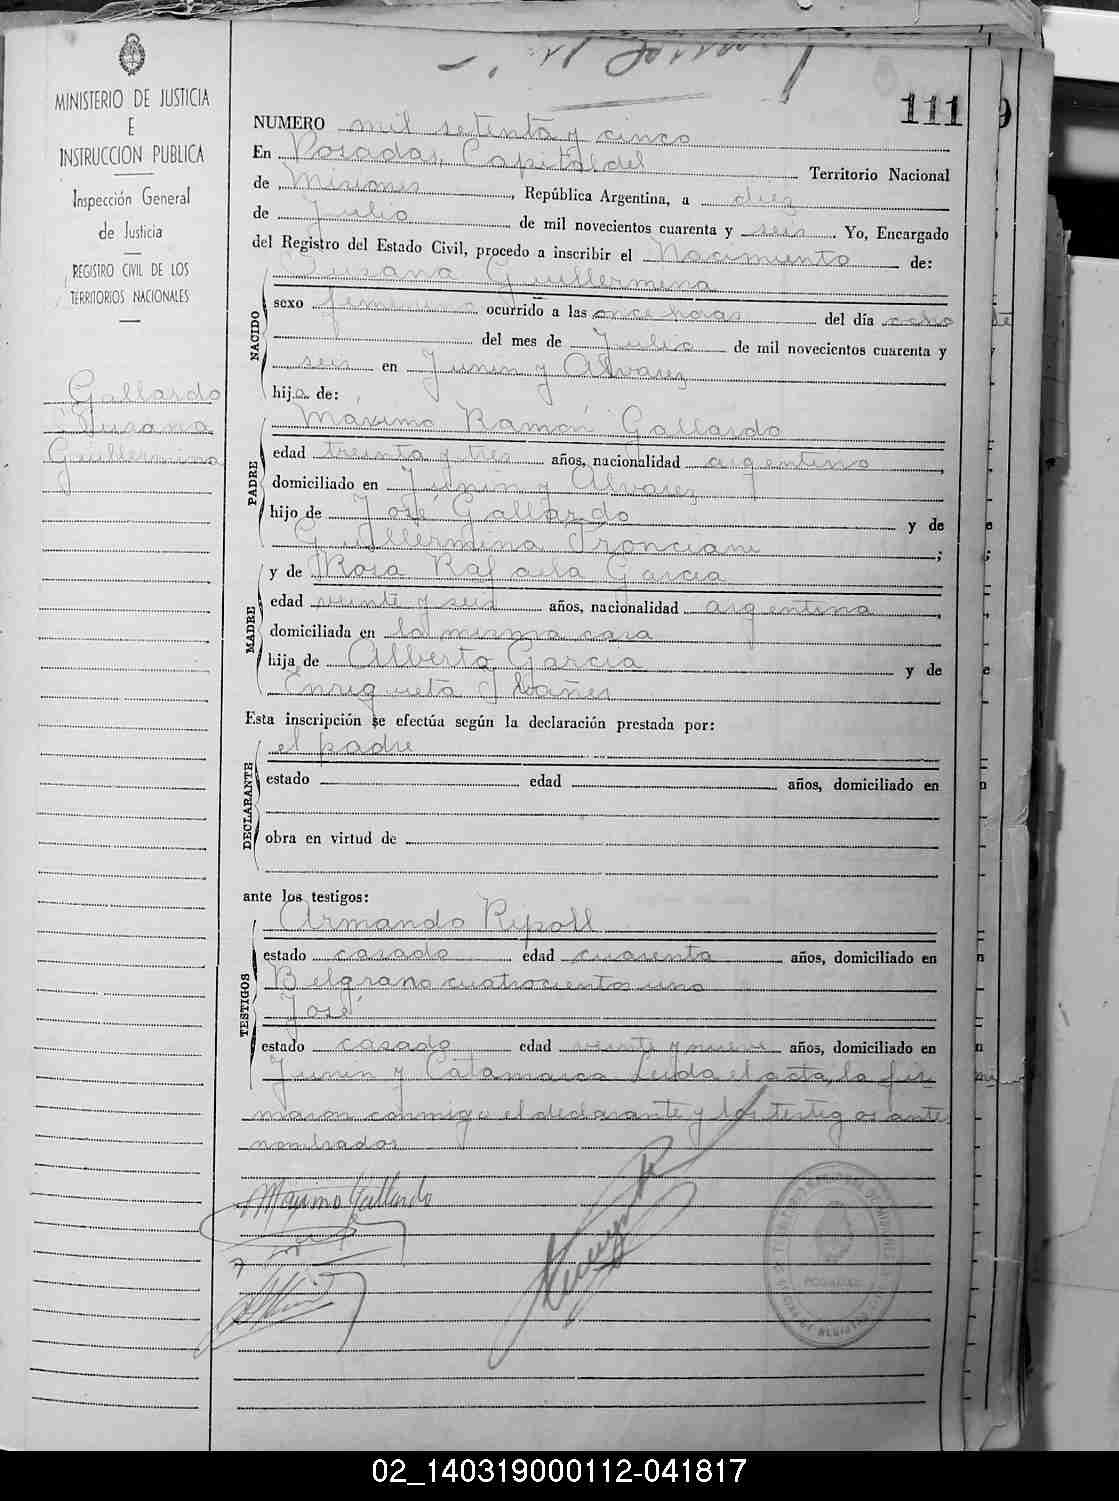 111
MINISTERIO DE JUSTICIA
E
INSTRUCCION PUBLICA
Inspección General
de Justicia
REGISTRO CIVIL DE LOS
TERRITORIOS NACIONALES
Gallardo
Susana
Guillermina
NUMERO mil setenta y cinco
En Posadas, Capital del Territorio Nacional
de Misiones, República Argentina, a diez
de Julio de mil novecientos cuarenta y seis. Yo, Encargado
del Registro del Estado Civil, procedo a inscribir el Nacimiento de:
NACIDO
Susana Guillermina
sexo femenino ocurrido a las once horas del día ocho
del mes de Julio de mil novecientos cuarenta y
seis en Junin y Alvarez
hija de:
PADRE
Maximo Ramón Gallardo
edad treinta y tres años, nacionalidad argentino,
domiciliado en Junin y Alvarez
hijo de José Gallardo y de
Guillermina Tronciani;
MADRE
y de Rosa Rafaela Garcia
edad veinte y seis años, nacionalidad argentina,
domiciliada en la misma casa
hija de Alberto Garcia y de
Enriqueta Ibañes
Esta inscripción se efectúa según la declaración prestada por:
DECLARANTE
el padre
estado edad años, domiciliado en
obra en virtud de
ante los testigos:
TESTIGOS
Armando Ripoll
estado casado edad cuarenta años, domiciliado en
Belgrano cuatrocientos uno
José
estado casado edad veinte y nueve años, domiciliado en
Junin y Catamarca Leida el acta, la fir-
maron conmigo el declarante y los testigos ante
nombrados
Maximo Gallardo
POSADAS
02_140319000112-041817